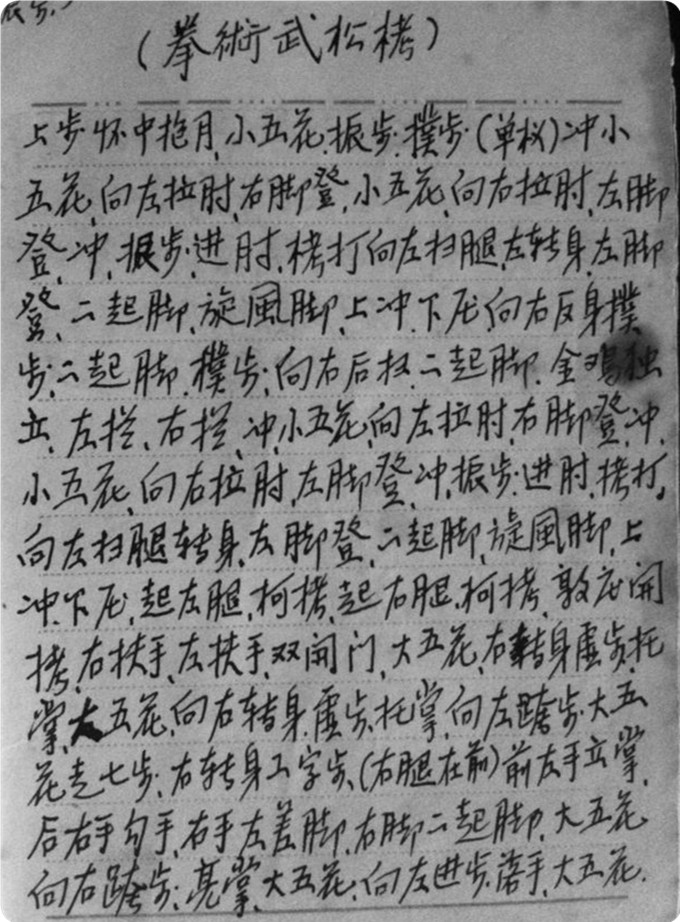 (拳術武松栲)
上步怀中抱月、小五花、振步、撲步(单杈)冲小
五花、向左拉肘、右脚登、小五花、向右拉肘、左脚
登、冲、振步、进肘、栲打向左扫腿、左转身、左脚
登、二起脚、旋風脚、上冲、下压、向右反身撲
步、二起脚、撲步、向右后杈、二起脚、金鸡独
立、左拦、右拦、冲、小五花、向左拉肘、右脚登、冲、
小五花、向右拉肘、左脚登、冲、振步、进肘、拷打、
向左扫腿转身、左脚登、二起脚、旋風脚、上
冲、下压、起左腿、柯拷、起右腿、柯拷、敦底開
拷、右扶手、左扶手、双開门、大五花、右转身虚步、托
掌、大五花、向右转身、虚步、托掌、向左跨步、大五
花走七步、右转身工字步、(右腿在前)前左手立掌、
后右手勾手、右手左差脚、右脚二起脚、大五花
向右跨步、亮掌、大五花、向左进步、落手、大五花.